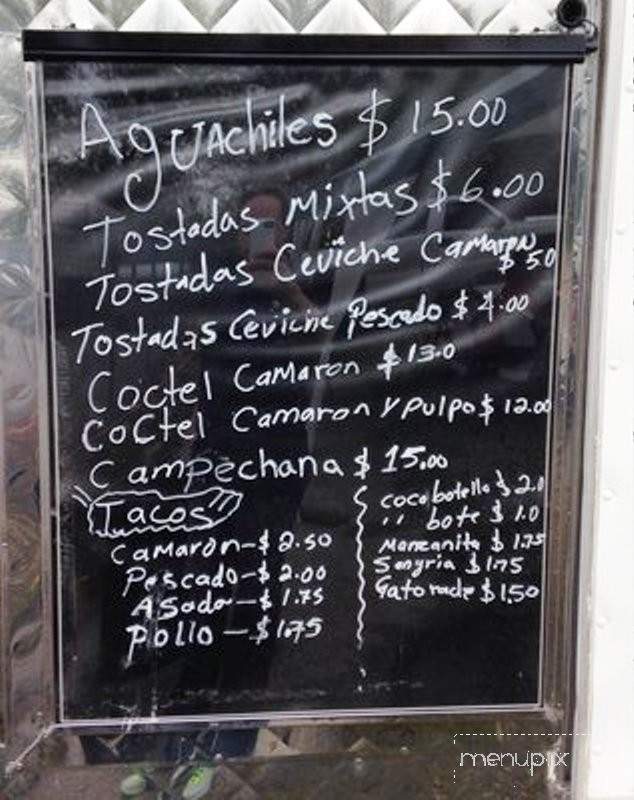 Aguachiles $ 15.00
Tostadas Mixtas $ 6.00
Tostadas Ceviche Camaron
$ 5.0
Tostadas Ceviche Pescado $ 4.00
Coctel Camaron $ 13.0
Coctel Camaron y Pulpo $ 12.00
Campechana $ 15.00
Tacos
Camaron-$ 2.50
Pescado-$ 2.00
Asada-$ 1.75
Pollo-$ 1.75
coca botella $ 2.0
" bote $ 1.0
Manzanita $ 1.75
Sangria $ 1.75
Gatorade $ 1.50
menupix